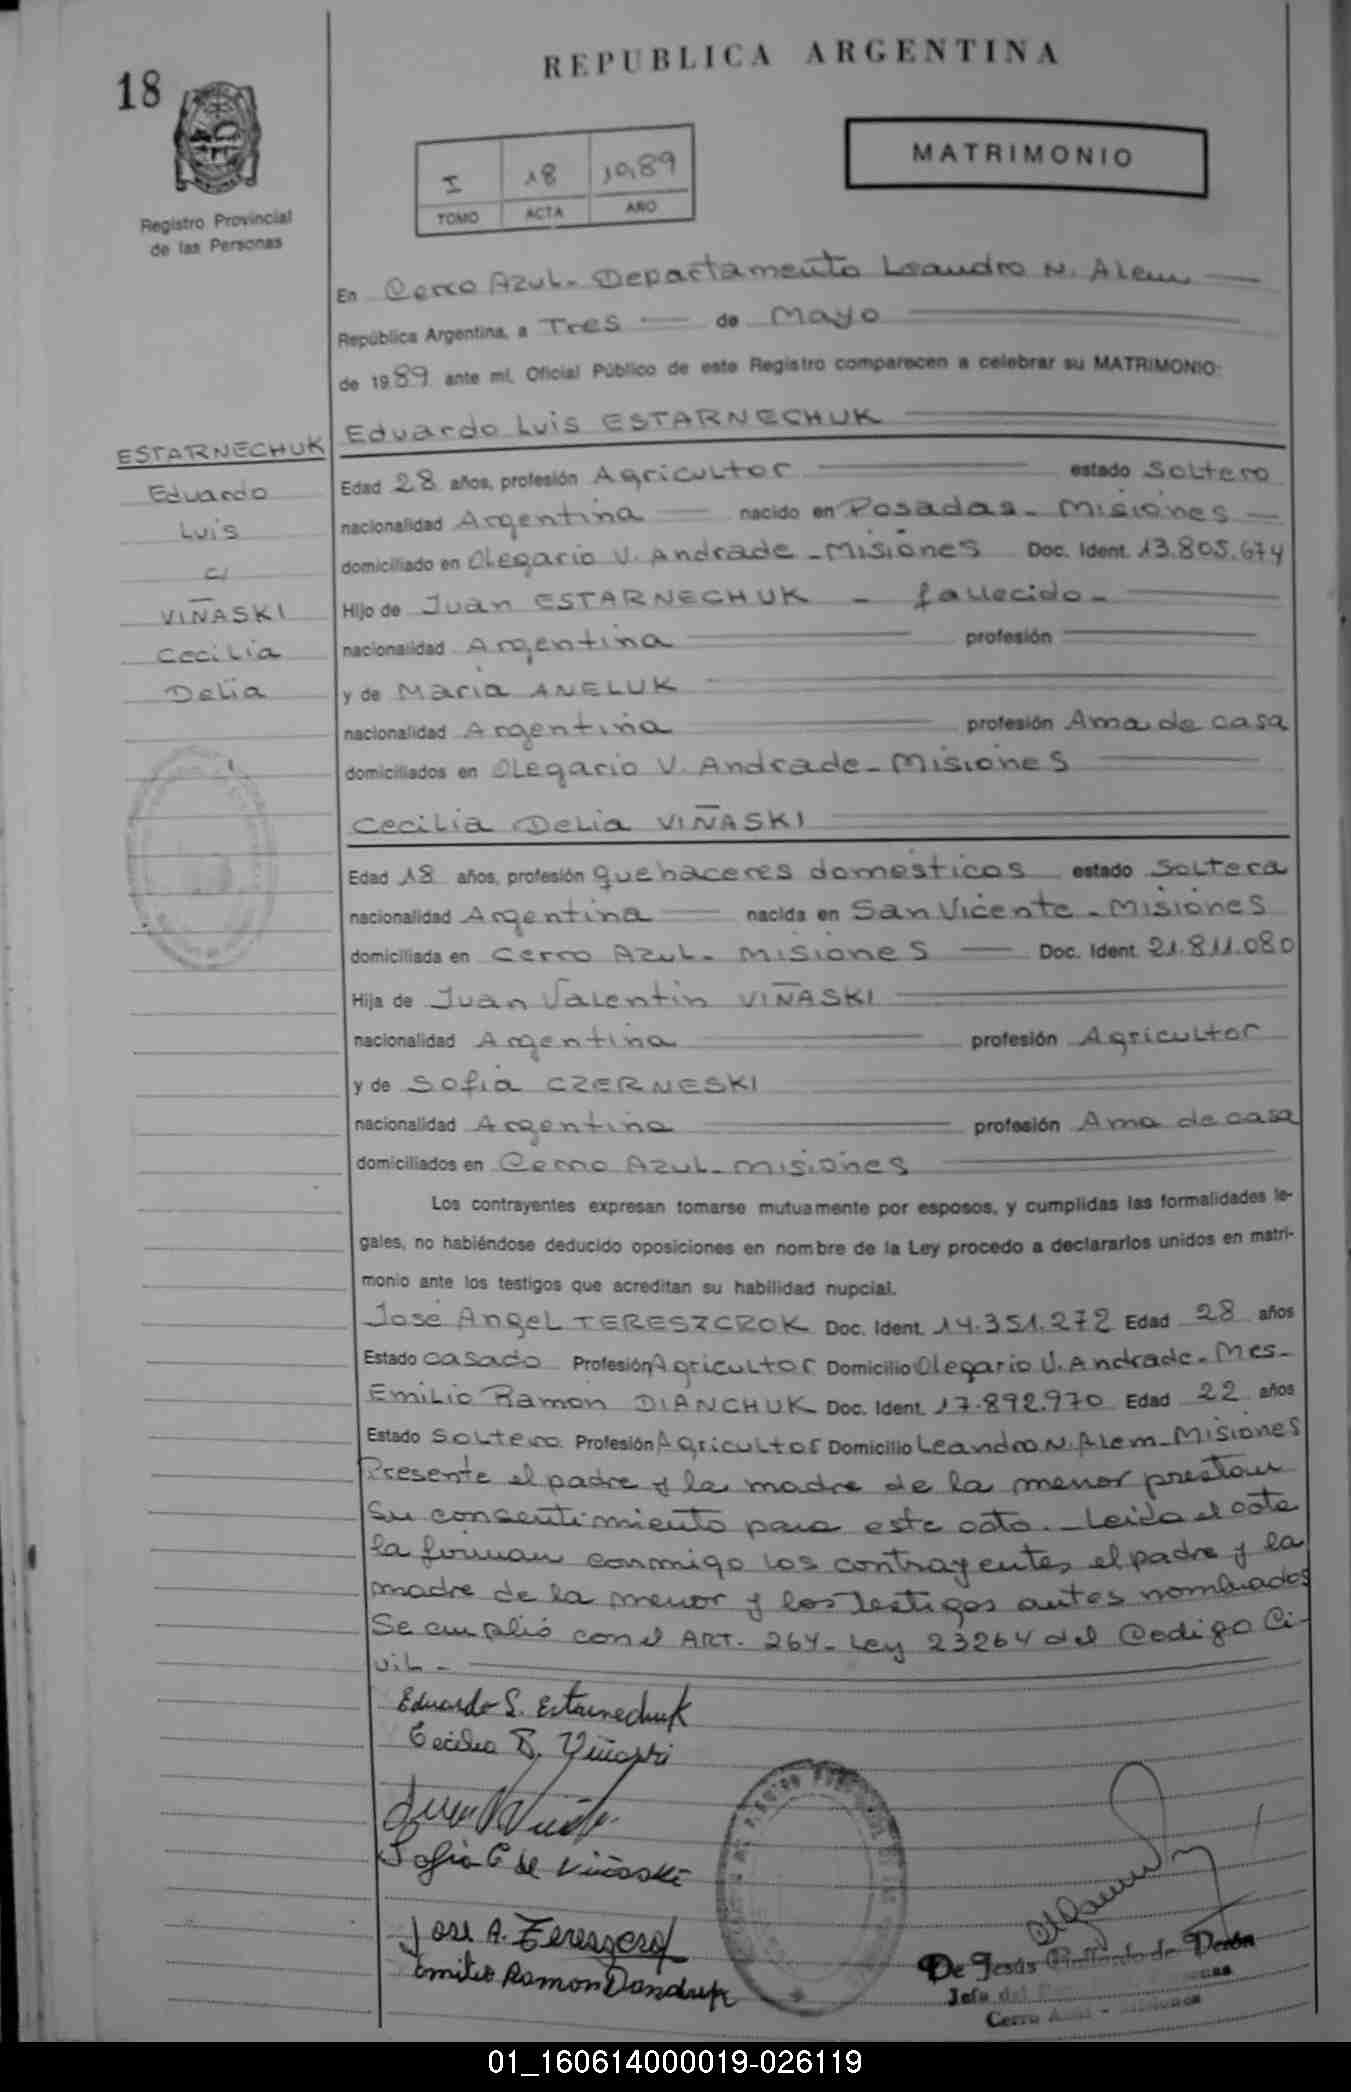 REPUBLICA ARGENTINA
18
I 18 1989
TOMO ACTA AÑO
MATRIMONIO
Registro Provincial
de las Personas
En Cerro Azul - Departamento Leandro N. Alem
República Argentina, a Tres de Mayo
de 1989 ante mí, Oficial Público de este Registro comparecen a celebrar su MATRIMONIO:
Eduardo Luis ESTARNECHUK
ESTARNECHUK
Eduardo
Luis
c/
VIÑASKI
Cecilia
Delia
Edad 28 años, profesión Agricultor estado Soltero
nacionalidad Argentina nacido en Posadas - Misiones
domiciliado en Olegario V. Andrade - Misiones Doc. Ident. 13.805.674
Hijo de Juan ESTARNECHUK - fallecido -
nacionalidad Argentina profesión
y de Maria ANELUK
nacionalidad Argentina profesión Ama de casa
domiciliados en Olegario V. Andrade - Misiones
Cecilia Delia VIÑASKI
Edad 18 años, profesión quehaceres domésticos estado Soltera
nacionalidad Argentina nacida en San Vicente - Misiones
domiciliada en Cerro Azul - Misiones Doc. Ident. 21.811.080
Hija de Juan Valentin VIÑASKI
nacionalidad Argentina profesión Agricultor
y de Sofia CZERNESKI
nacionalidad Argentina profesión Ama de casa
domiciliados en Cerro Azul - Misiones
Los contrayentes expresan tomarse mutuamente por esposos, y cumplidas las formalidades le-
gales, no habiéndose deducido oposiciones en nombre de la Ley procedo a declararlos unidos en matri-
monio ante los testigos que acreditan su habilidad nupcial.
José Angel TERESZCZOK Doc. Ident. 14.351.272 Edad 28 años
Estado casado Profesión Agricultor Domicilio Olegario V. Andrade - Mes -
Emilio Ramón DIANCHUK Doc. Ident. 17.892.970 Edad 22 años
Estado Soltero Profesión Agricultor Domicilio Leandro N. Alem - Misiones
Presente el padre y la madre de la menor prestan
su consentimiento para este acto. - Leida el acta
la firman conmigo los contrayentes, el padre y la
madre de la menor y los testigos antes nombrados
Se cumplió con el ART. 264 - Ley 23264 del Codigo Ci-
vil -
Eduardo L. Estarnechuk
Cecilia D. Viñaski
Sofia C de Viñaski
Jose A.
Emilio Ramon
De Jesús de
Jefa del
Cerro Azul - Misiones
01_160614000019-026119